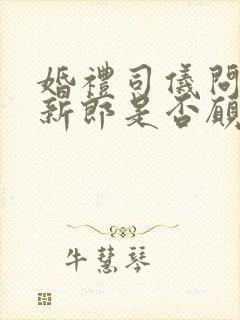 婚禮司儀問
新郎是否願
牛慧琴